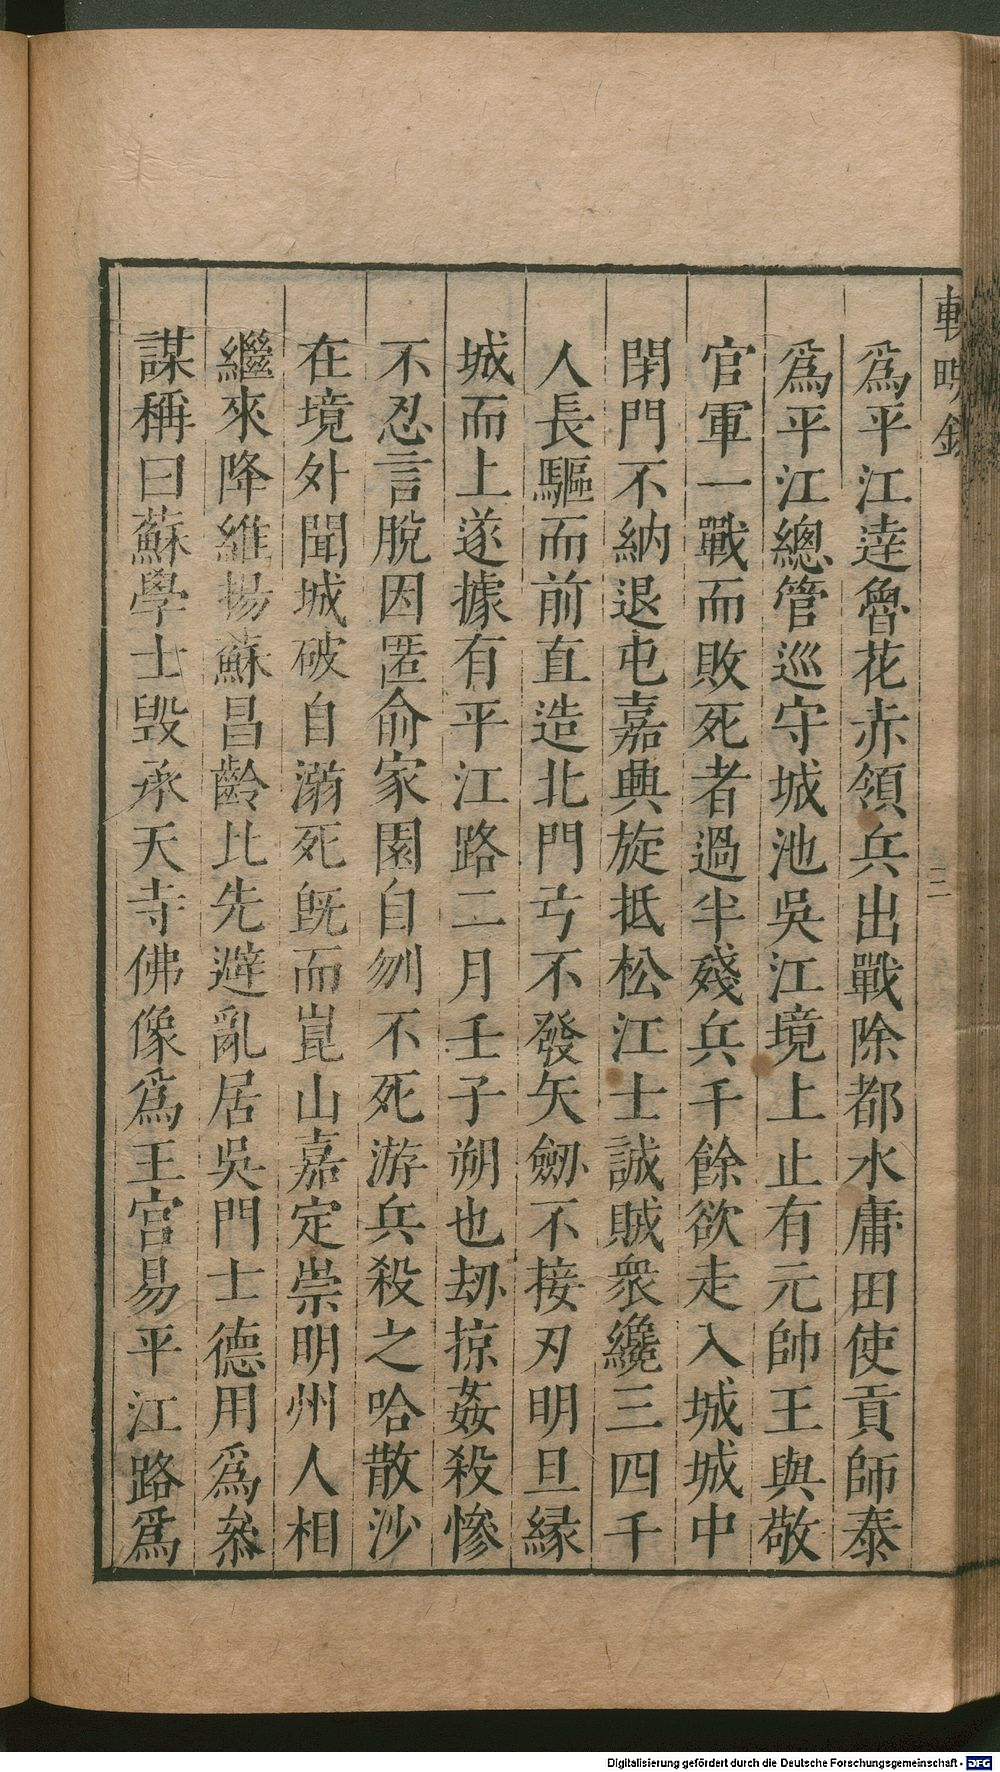 輟畊錄
二
爲平江達魯花赤領兵出戰除都水庸田使貢師泰
爲平江總管巡守城池吳江境上止有元帥王與敬
官軍一戰而敗死者過半殘兵千餘欲走入城城中
閉門不納退屯嘉興旋抵松江士誠賊衆纔三四千
人長驅而前直造北門弓不發矢劒不接刃明旦緣
城而上遂據有平江路二月壬子朔也刼掠姦殺慘
不忍言脫因匿俞家園自刎不死游兵殺之哈散沙
在境外聞城破自溺死旣而崑山嘉定崇明州人相
繼來降維揚蘇昌齡比先避亂居吳門士德用爲叅
謀稱曰蘇學士毀承天寺佛像爲王宮易平江路爲
Digitalisierung gefördert durch die Deutsche Forschungsgemeinschaft - DFG